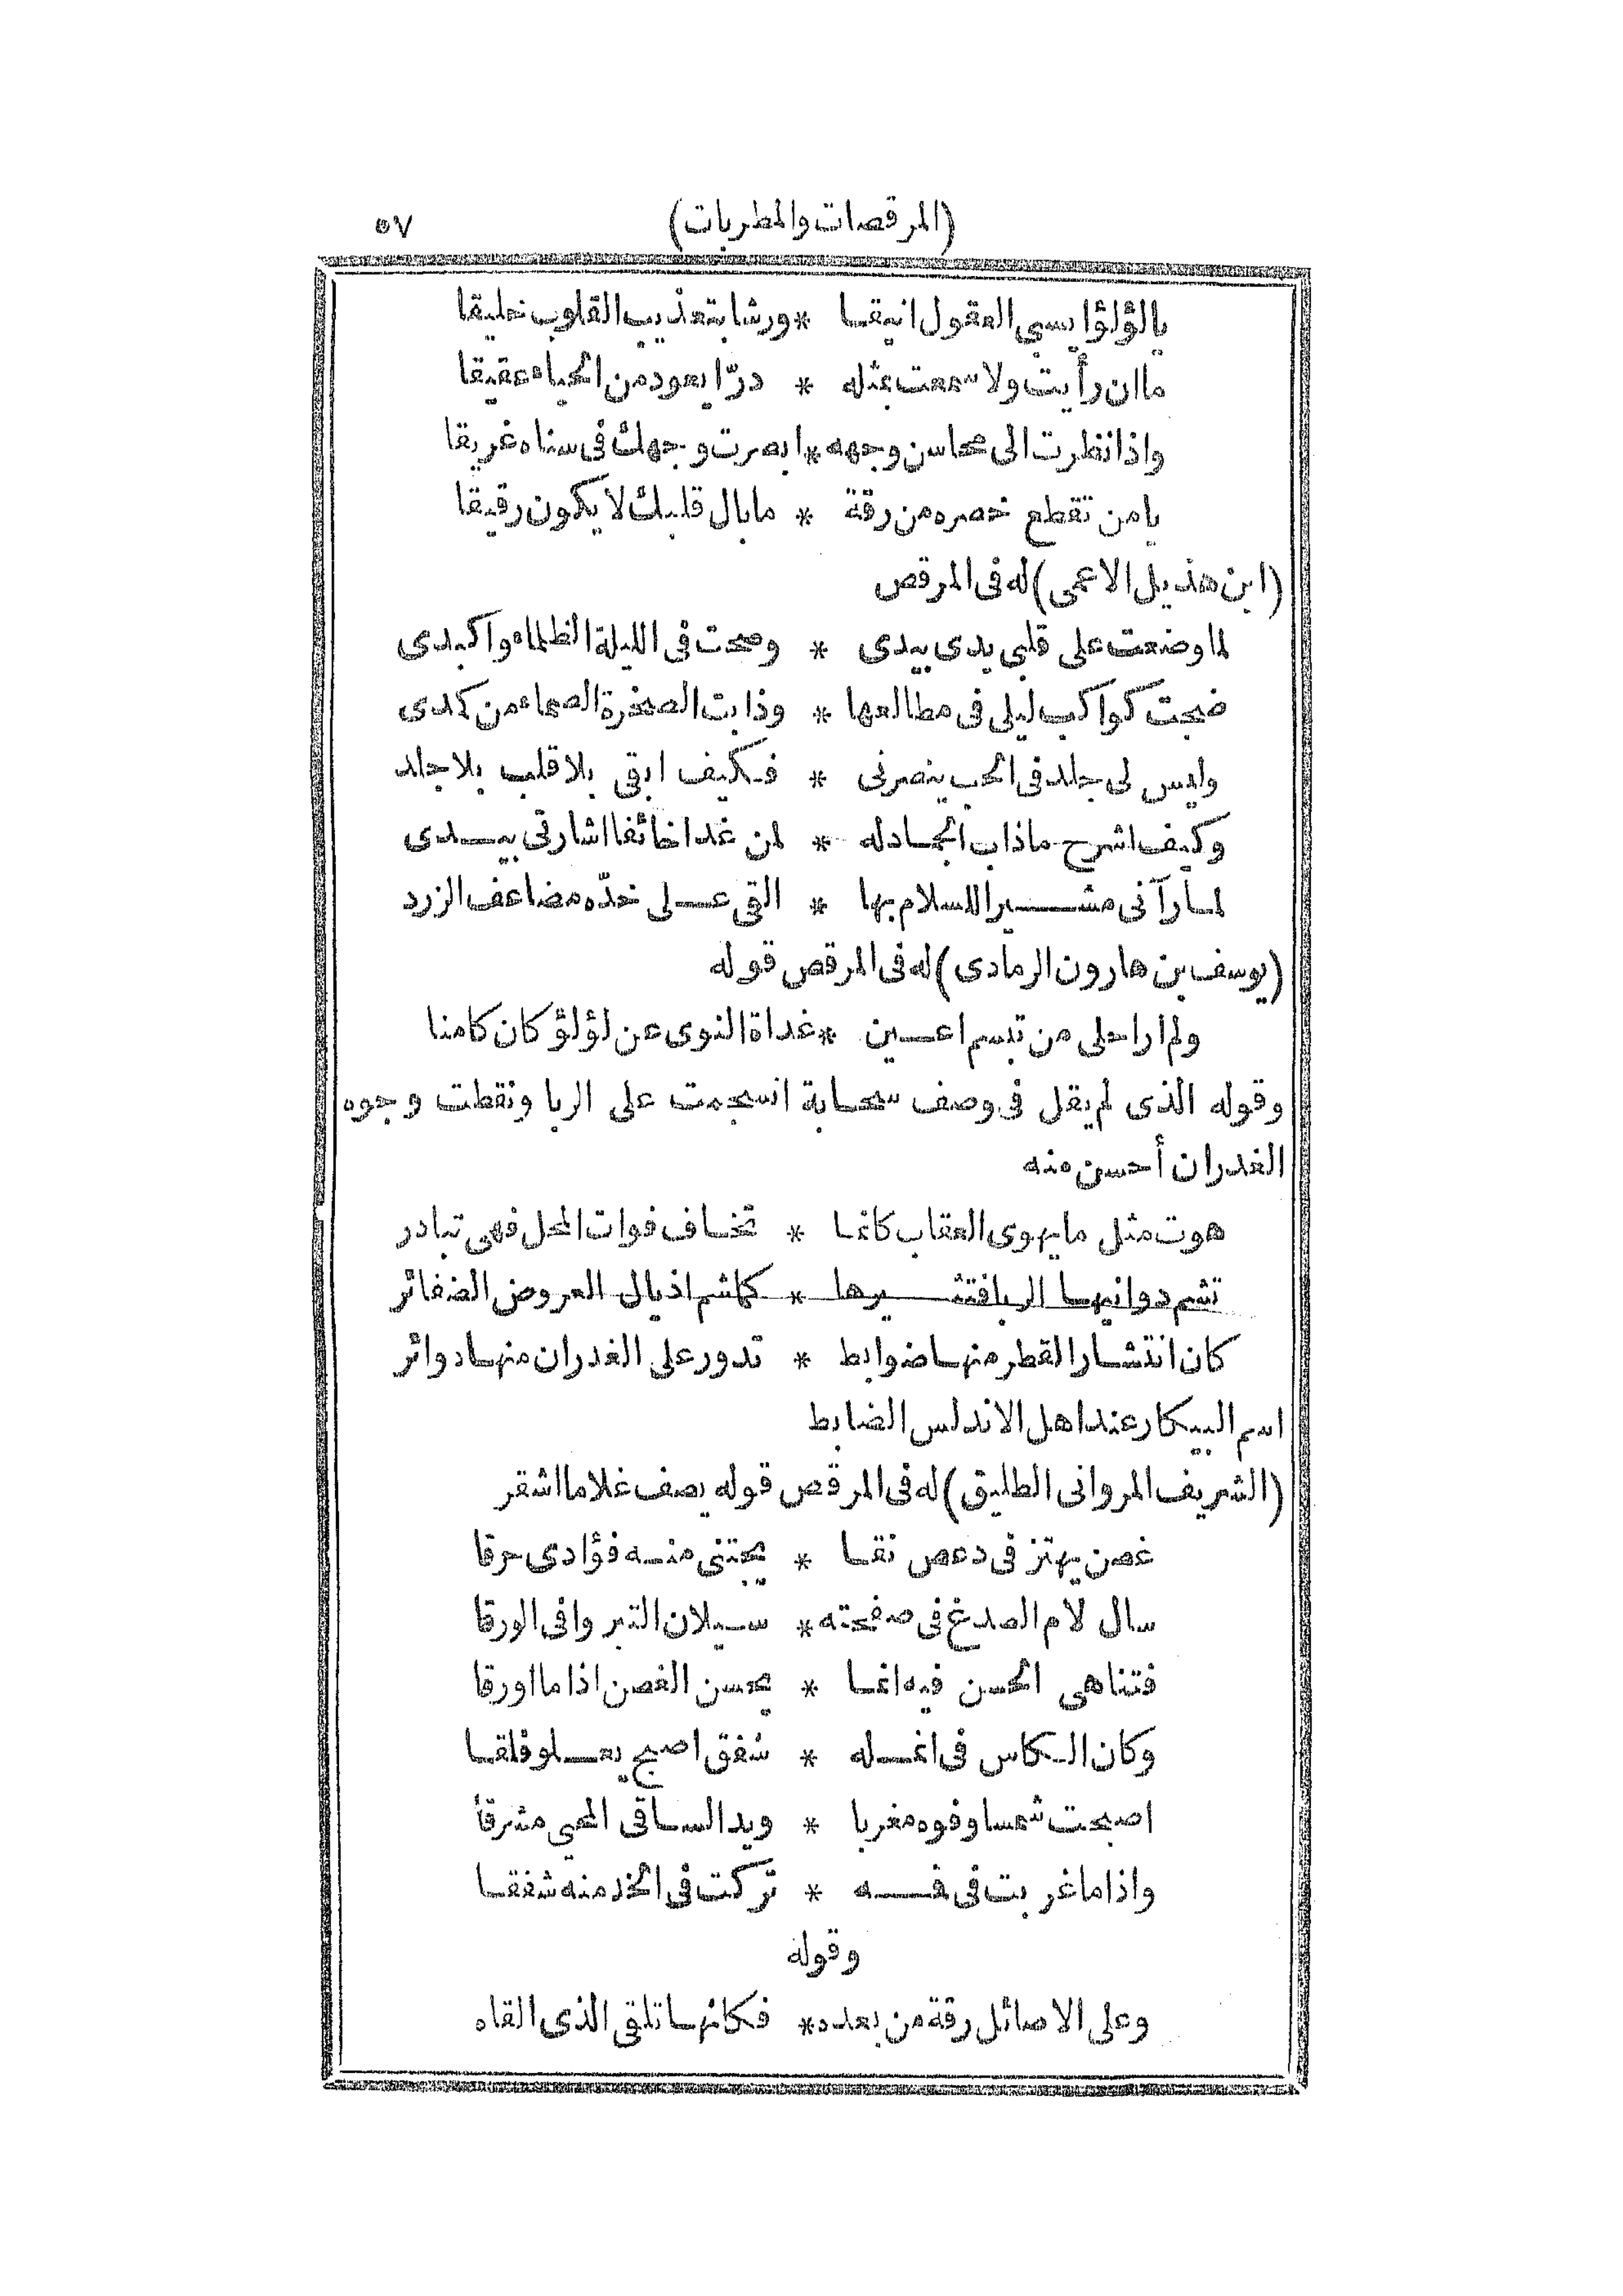 (المرقصات والمطربات) ٥٧
يالؤلؤا يسبى العقول انيقا * ورشا بتعذيب القلوب خليقا
ماان رأيت ولا سمعت بمثله * درّا يعود من الحياء عقيقا
واذا نظرت الى محاسن وجهه * ابصرت وجهك فى سناه غريقا
يامن تقطع خصره من رقة * مابال قلبك لا يكون رقيقا
(ابن هذيل الاعمى) له فى المرقص
لما وضعت على قلبى يدى بيدى * وصحت فى الليلة الظلماء واكبدى
ضجت كواكب ليلى فى مطالعها * وذابت الصخرة الصماء من كمدى
وليس لى جلد فى الحب ينصرنى * فكيف ابقى بلا قلب بلا جلد
وكيف اشرح ماذاب الجماد له * لمن غدا خائفا اشارتى بيدى
لما رآنى مشيرا للسلام بها * القى على خدّه مضاعف الزرد
(يوسف بن هارون الرمادى) له فى المرقص قوله
ولم ار احلى من تبسم اعين * غداة النوى عن لؤلؤ كان كامنا
وقوله الذى لم يقل فى وصف سحابة انسجمت على الربا ونقطت وجوه
الغدران أحسن منه
هوت مثل مايهوى العقاب كانما * تخاف فوات المحل فهى تبادر
تشم دوانيها الربا فتثيرها * كماشم اذيال العروض الضفائر
كان انتشار القطر منها ضوابط * تدور على الغدران منها دوائر
اسم البيكار عند اهل الاندلس الضابط
(الشريف المروانى الطليق) له فى المرقص قوله يصف غلاما اشقر
غصن يهتز فى دعص نقا * يجتنى منه فؤادى حرقا
سال لام الصدغ فى صفحته * سيلان التبر وافى الورقا
فتناهى الحسن فيه انما * يحسن الغصن اذا ما اورقا
وكان الكاس فى انمله * شفق اصبح يعلو فلقا
اصبحت شمسا وفوه مغربا * ويد الساقى المحيى مشرقا
واذا ما غربت فى فمه * تركت فى الخد منه شفقا
وقوله
وعلى الاصائل رقة من بعده * فكانها تلقى الذى القاه